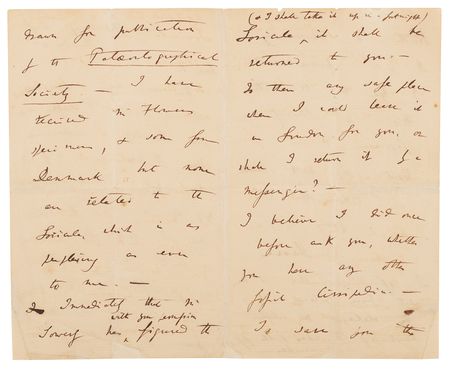 drawn for publication
of the Palæontographical
Society. — I have
received in Flowers
specimens, & some from
Denmark but none
are related to the
Loricula, which is as
perplexing as ever
to me. —
Immediately that Mr
with your permission
Sowerby has figured the
(& I shall take it up in a fortnight)
Loricula, it shall be
returned to you. —
Is there any safe place
where I could leave it
in London for you, or
shall I return it by a
messenger? —
I believe I did once
before ask you, whether
you have any other
fossil Cirripedia —
To save you the